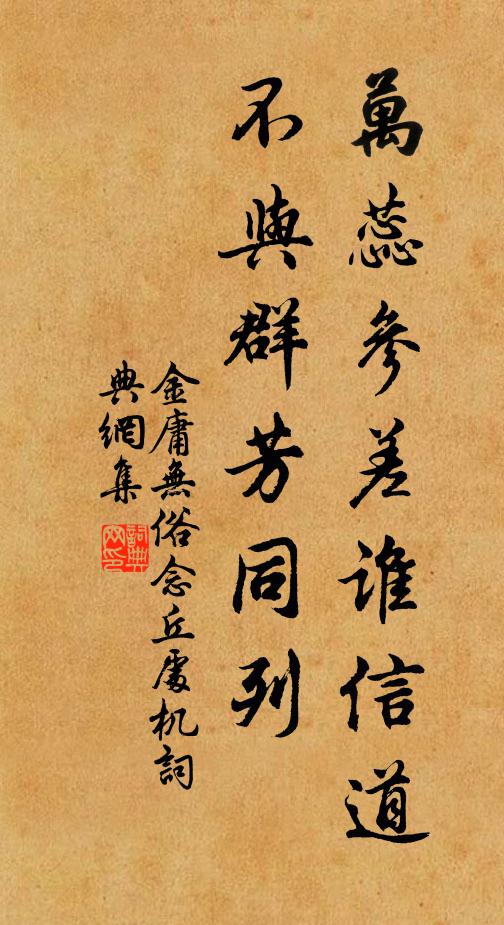 萬蕊參差誰信道
不與群芳同列
金庸無俗念丘處机詞
典網集
詞典网印